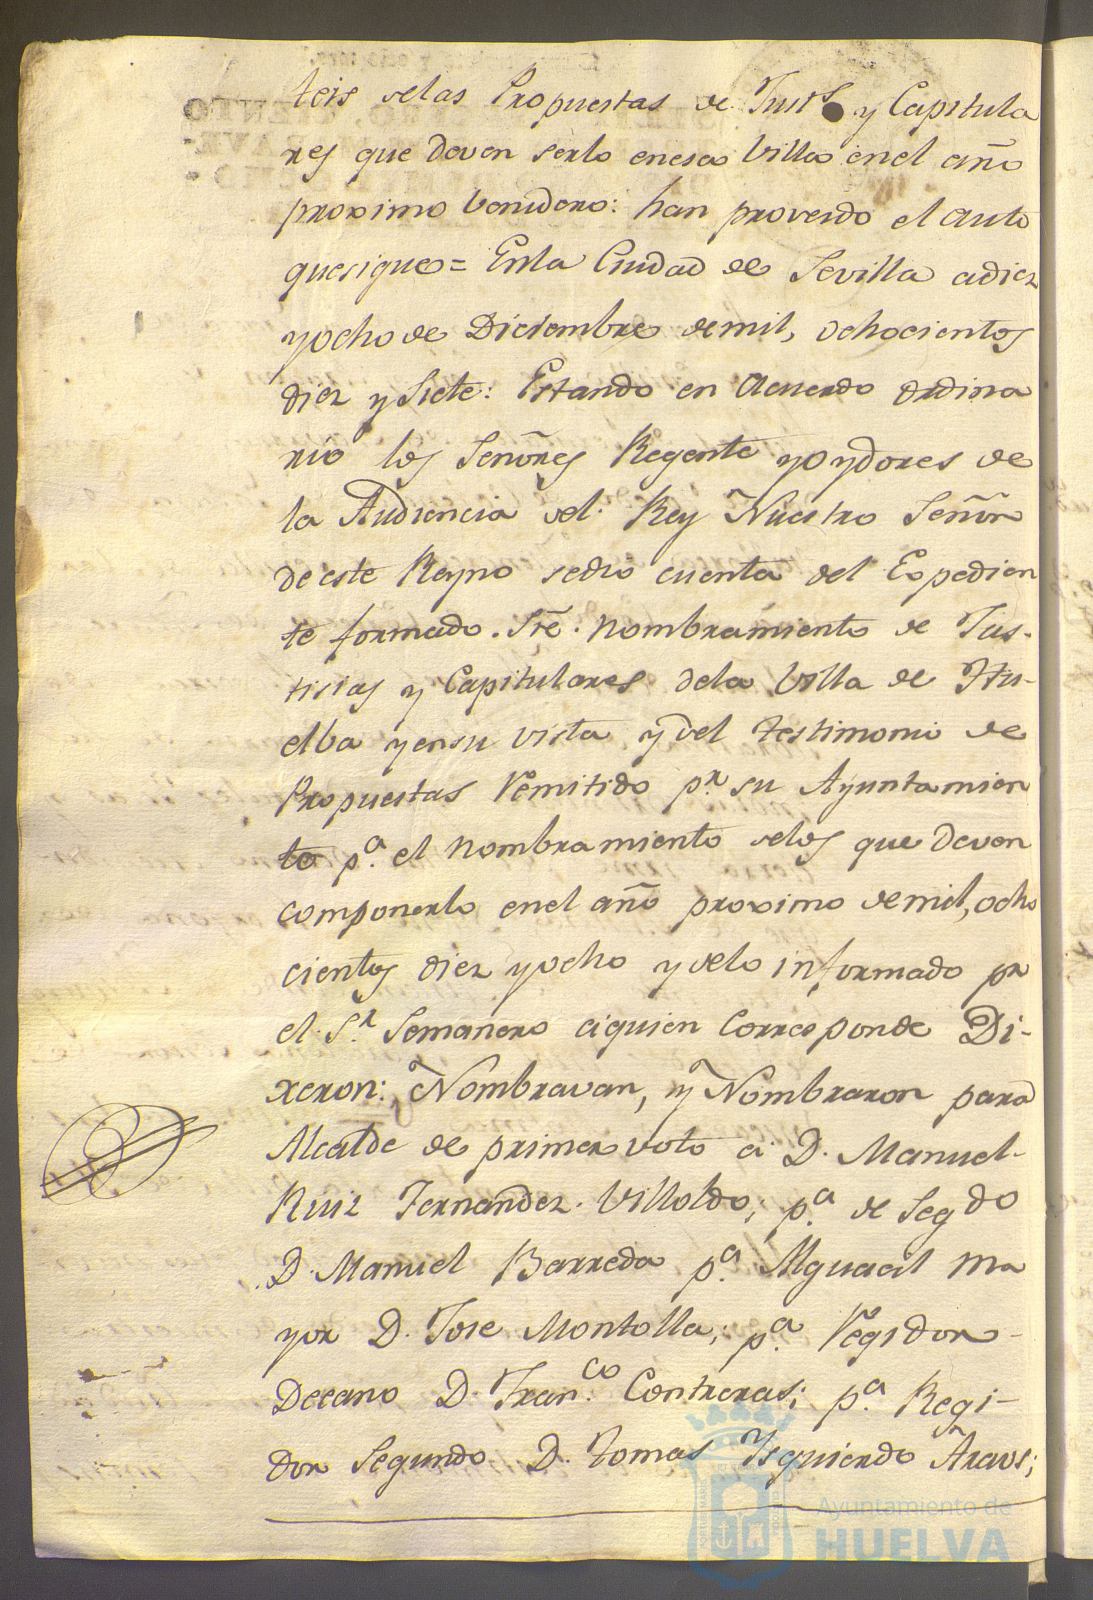 teis delas Propuestas de Just.s y Capitula
res que deven serlo enesa Villa enel año
proximo benidero: han proveido el auto
quesigue = Enla Ciudad de Sevilla adiez
yocho de Diciembre demil, ochocientos
diez y Siete: Estando en Acuerdo ordina
rio los Señores Regente yoydores de
la Audiencia del Rey Nuestro Señor
deeste Reyno sedio cuenta del Expedien
te formado Sre. nombramiento de Jus-
ticias y Capitulares dela Villa de Hu-
elba yensu vista y del testimonio de
Propuestas Remitido pr. su Ayuntamien
to pa. el nombramiento delos que deven
componerlo enel año proximo demil, ocho
cientos diez yocho ydelo informado pr
el Sr. Semanero aquien Corresponde Di-
xeron: Nombravan, y Nombraron para
Alcalde de primer voto a D. Manuel
Ruiz Fernandez Villoldo; pa. de Segdo
D. Manuel Barreda pa. Alguacil ma
yor D. Jose Montolla; pa. Regidor
Decano D. Franco. Contreras; pa. Regi-
dor Segundo D. Tomas Ysquierdo Araus;
Ayuntamiento de
HUELVA